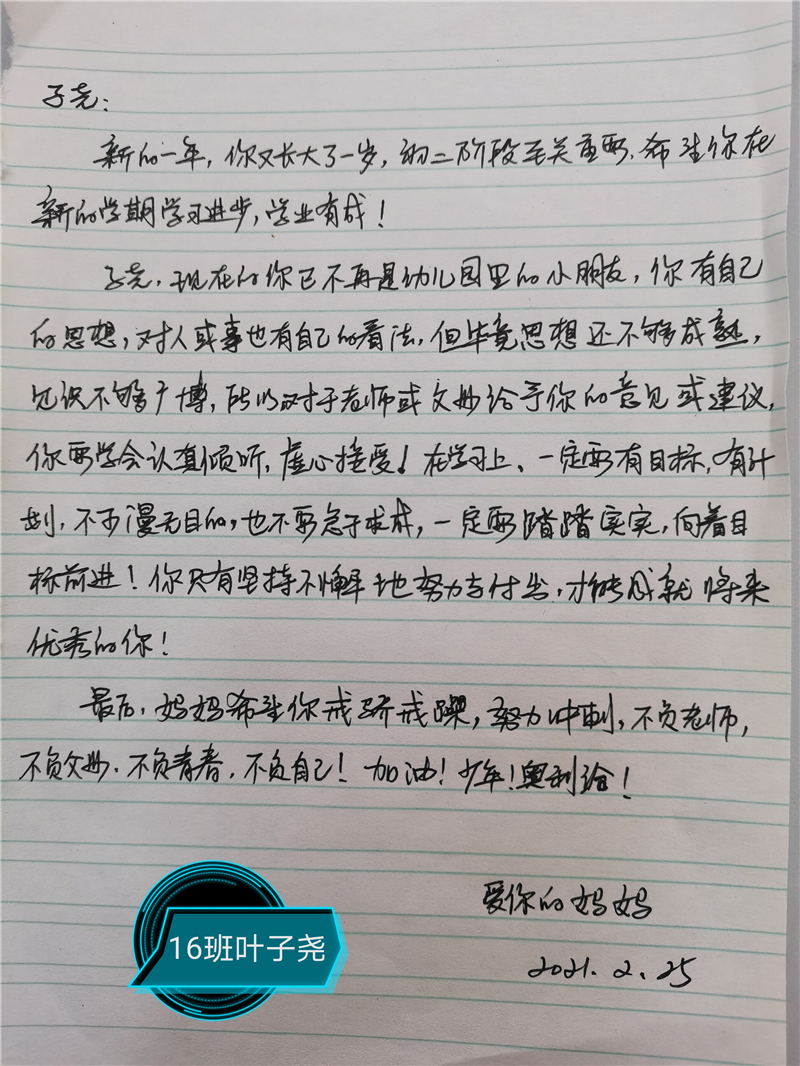 子尧：
新的一年，你又长大了一岁，初二阶段至关重要，希望你在
新的学期学习进步，学业有成！
子尧，现在的你已不再是幼儿园里的小朋友，你有自己
的思想，对人或事也有自己的看法，但毕竟思想还不够成熟，
见识不够广博，所以对于老师或父母给予你的意见或建议，
你要学会认真倾听，虚心接受！在学习上、一定要有目标，有计
划，不可漫无目的，也不要急于求成，一定要踏踏实实，向着目
标前进！你只有坚持不懈地努力与付出，才能成就将来
优秀的你！
最后，妈妈希望你戒骄戒躁，努力冲刺，不负老师，
不负父母，不负青春，不负自己！加油！少年！奥利给！
爱你的妈妈
2021.2.25
16班叶子尧